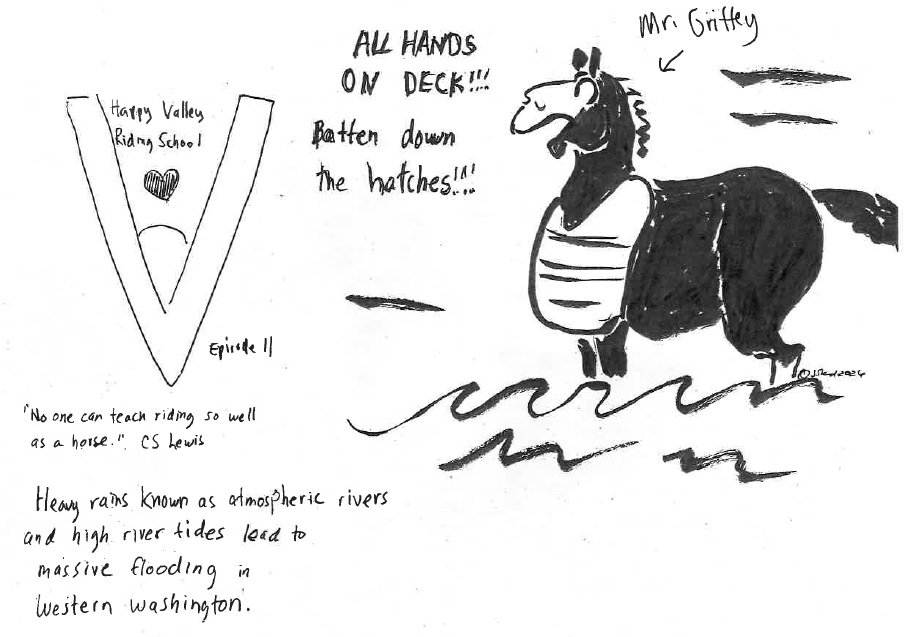 Happy Valley
Riding School
Episode 11
"No one can teach riding so well
as a horse." CS Lewis
Heavy rains known as atmospheric rivers
and high river tides lead to
massive flooding in
Western Washington.
ALL HANDS
ON DECK!!!
Batten down
the hatches!!!
Mr. Griffey